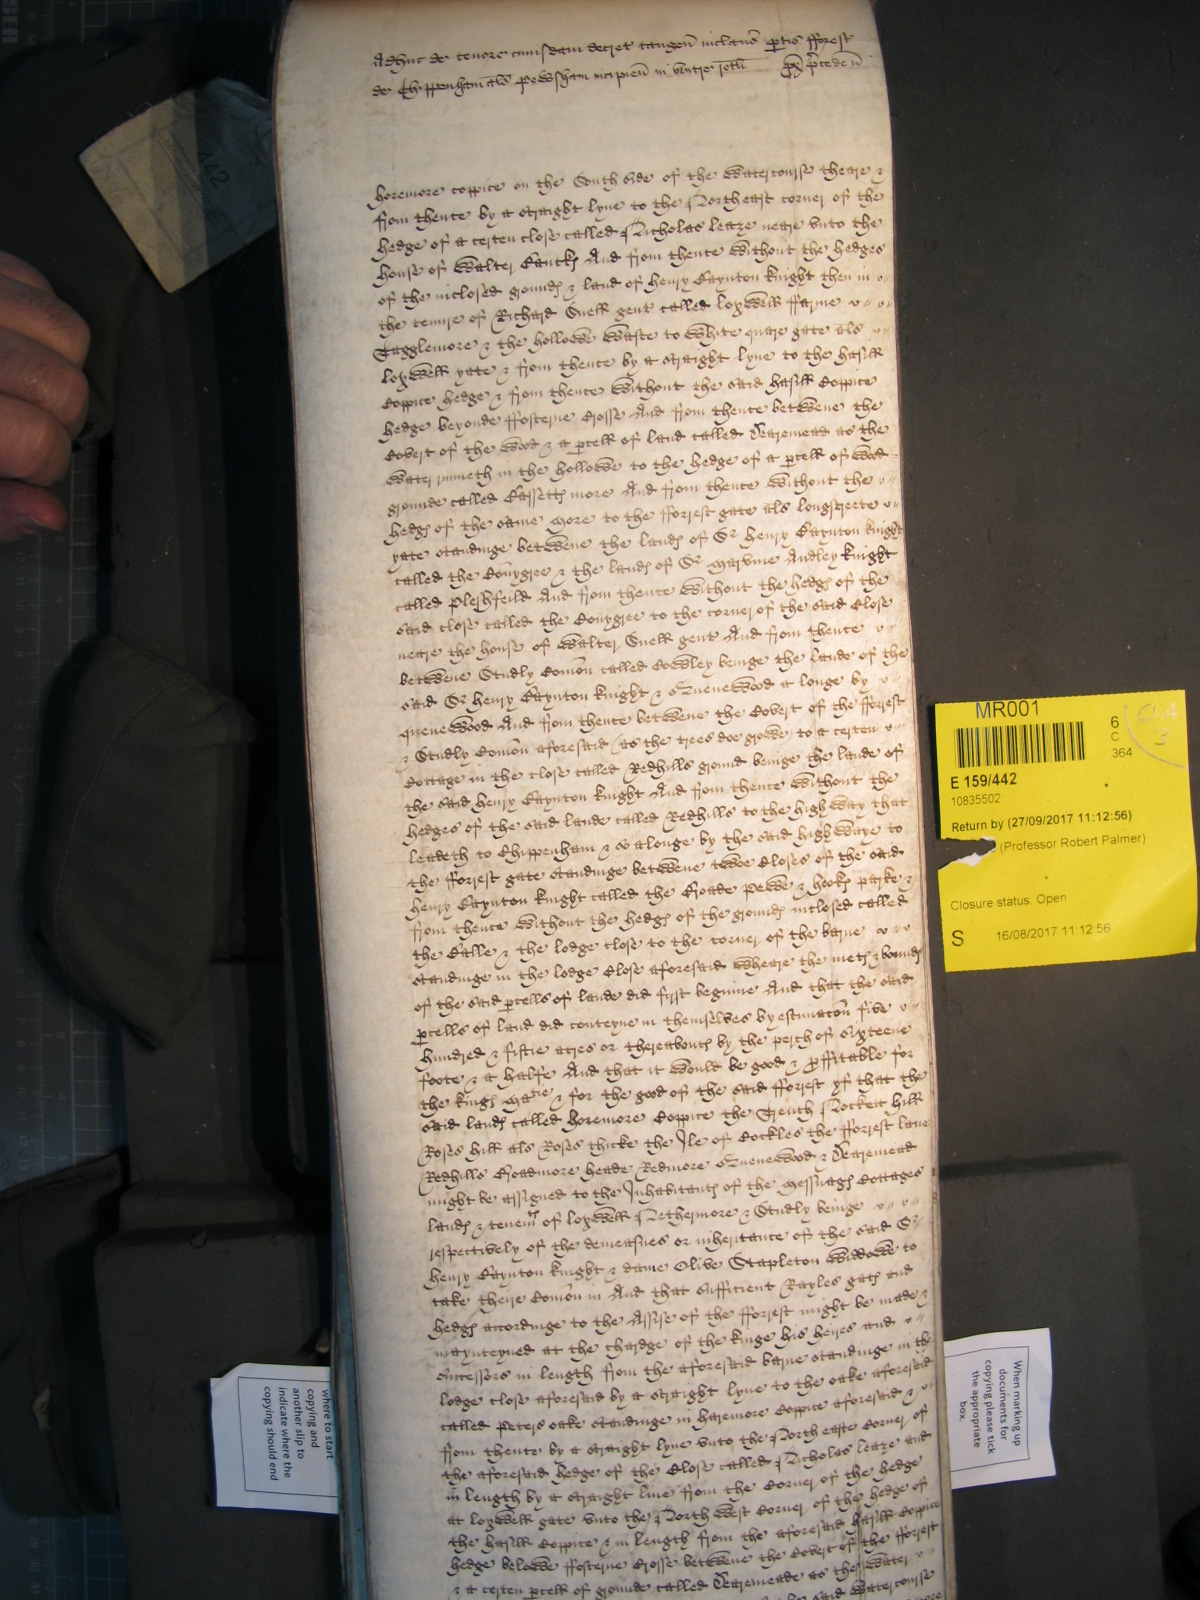 Adhuc de tenore cuiusdam decret tangen inclaus ptis fforest
de Chippenham als Pewsham incipien in vltie rotli px preceden
horemore coppice on the South side of the watercourse theare &
from thence by a straight lyne to the Northeast corner of the
hedge of a certen close called Nicholas Leaze neare vnto the
house of Walter And from thence without the hedges
of the inclosed grounds & land of Henry Baynton knight then in
the tenure of Richard Snell gent called Loxwell ffarme
Tagglemore & the hollowe waste to White quare gate als
Loxwell yate & from thence by a straight lyne to the hasill
Coppice hedge & from thence without the said hasill Coppice
hedge beyonde ffosterne Crosse And from thence betwene the
Covert of the wood & a pcell of land called Dearemead as the
water runneth in the hollowe to the hedge of a pcell of wood
grounde called more And from thence without the
hedgs of the same More to the fforrest gate als Longstreete
yate standinge betwene the lands of Sr Henry Baynton knight
called the Connygree & the lands of Sr Marvine Audley knight
called Pleshfeild And from thence without the hedgs of the
said close called the Connygree to the corner of the said Close
neare the house of Walter Snell gent And from thence
betwene Studly Comon called Cowley beinge the lands of the
said Sr Henry Baynton knight & Quenewood a longe by
quenewood And from thence betwene the Covert of the fforrest
& Studly Comon aforesaid (as the trees doe growe) to a certen
Cottage in the close called Redhills ground beinge the lande of
the said Henry Baynton knight And from thence without the
hedges of the said lande called Redhills to the high way that
leadeth to Chippenham & so alonge by the said high waye to
the fforrest gate standinge betwene twoe Closes of the said
Henry Baynton knight called the Roade Pewe & hooks parke &
from thence without the hedgs of the grounds inclosed called
the Calle & the lodge close to the corner of the barne
standinge in the lodge Close aforesaid wheare the mets & bounds
of the said pcells of lande did first beginne And that the said
pcells of land did conteyne in themselves by estimacon five
hundred & fiftie acres or thereabouts by the perch of Sixteene
foote & a halfe And that it would be good & proffitable for
the kings Matie & for the good of the said fforrest yf that the
said lands called horemore Coppice the Trench Nockett hill
Roses hill als Roses thicke the Ile of Cockles the fforrest lane
Redhills Roadmore heade Redmore Quenewood & Dearemead
might be assigned to the Inhabitants of the Messuags Cottages
lands & tenemts of Loxwell Nethermore & Studly beinge
respectively of the demeasnes or inheritance of the said Sr
Henry Baynton knight & dame Olive Stapleton widdowe to
take theire Comon in And that sufficient Rayles gats and
hedgs accordinge to the Assise of the fforrest might be made &
maynteyned at the chardge of the kinge his heires and
successors in length from the aforesaid barne standinge in the
lodge close aforesaid by a straight lyne to the oake aforesaid
called Peters oake standinge in haremore Coppice aforesaid &
from thence by a straight lyne vnto the Northeaste Corner of
the aforesaid hedge of the Close called Nicholas leaze and
in length by a straight line from the Corner of the hedge
at loxwell gate vnto the North west Corner of the hedge of
the hasill Coppice & in length from the aforesaid hasill Coppice
hedge belowe ffosterne Crosse betwene the Covert of the fforrest
& a certen pcell of grounde called Dearemeade as the water
said watercourse
MR001
6
C
364
E 159/442
10835502
Return by (27/09/2017 11:12:56)
(Professor Robert Palmer)
Closure status: Open
S 16/08/2017 11:12:56
where to start
copying and
another slip to
indicate where the
copying should end
When marking up
documents for
copying please tick
the appropriate
box.